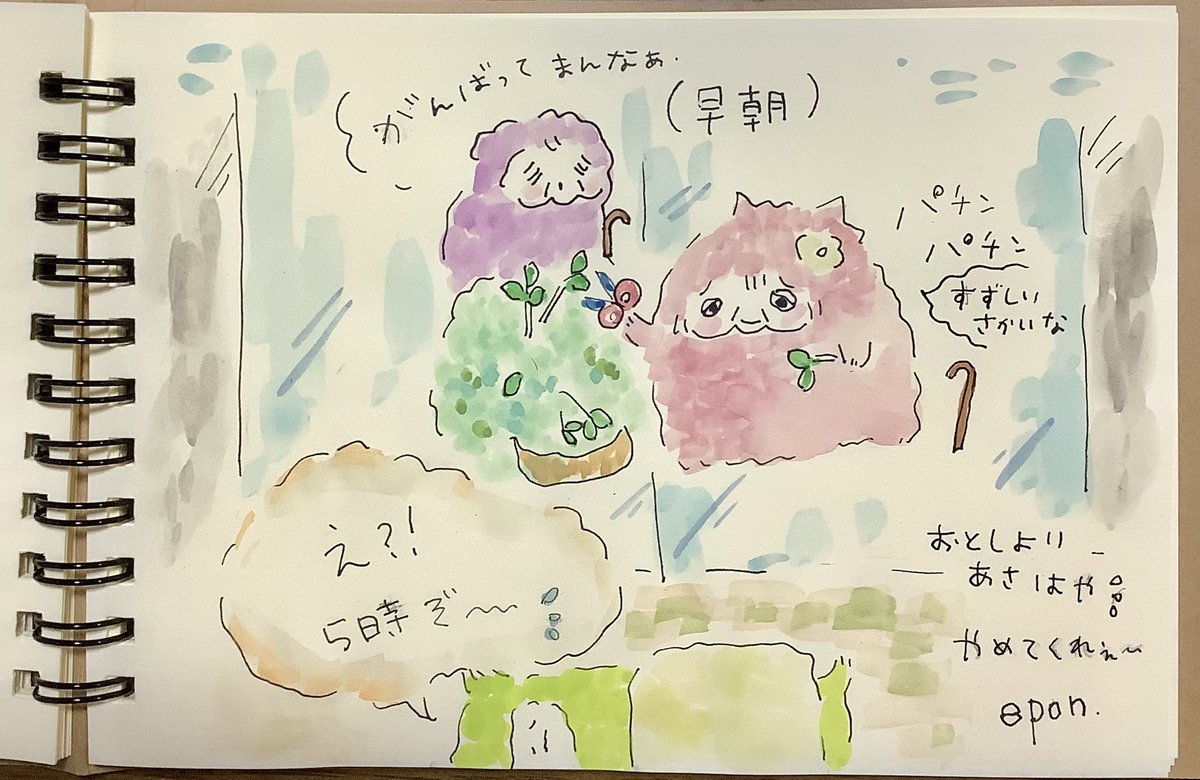 がんばってまんなぁ.
(早朝)
パチン
パチン
すずしい
さかいな
え?!
5時ぞ〜
おとしより
あさはや
やめてくれぇ〜
epon.